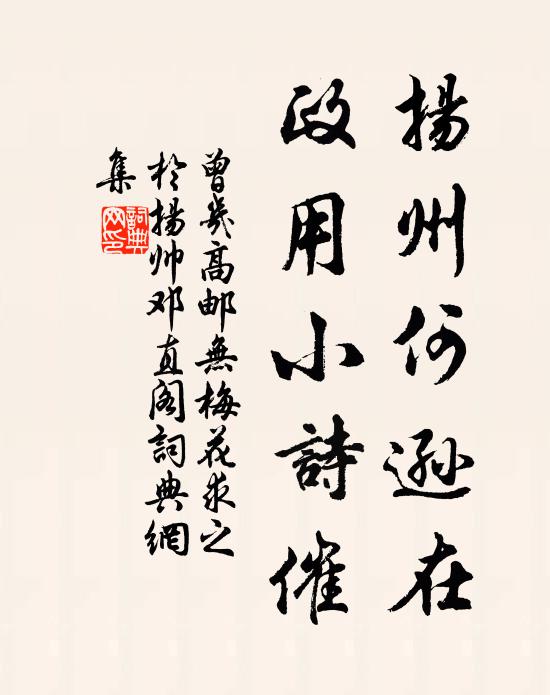 揚州何遜在
政用小詩催
曾幾高邮無梅花求之
於揚帅邓直阁詞典網
集
詞典網印